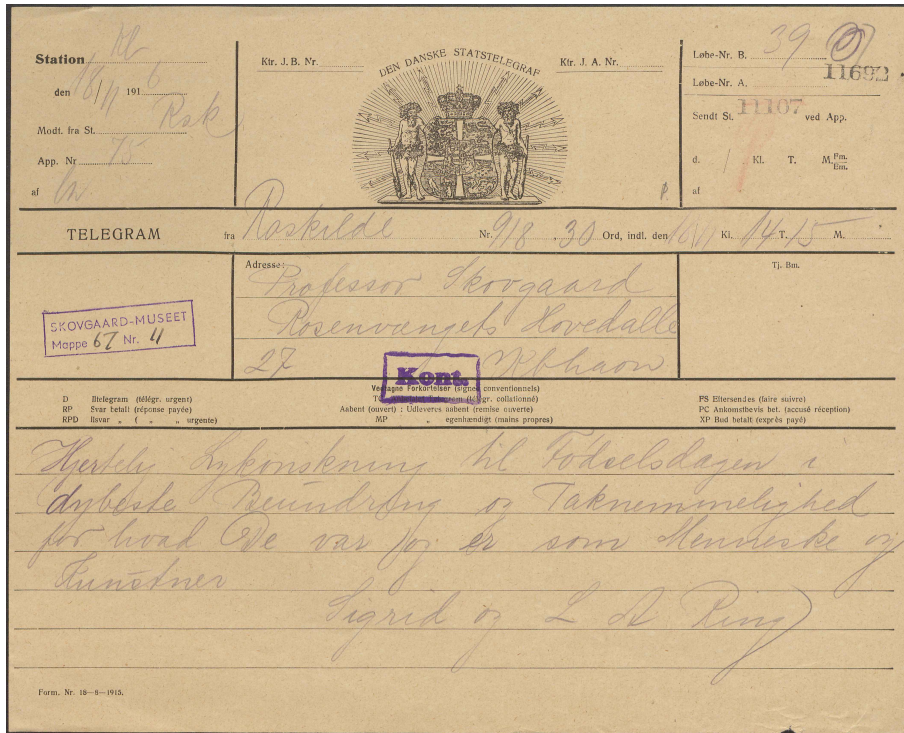 Station Kh
den 18/11 1916
Modt. fra St. Rsk
App. Nr 75
af
Ktr. J. B. Nr.
DEN DANSKE STATSTELEGRAF
Ktr. J. A. Nr.
Løbe-Nr. B. 39
11692
Løbe-Nr. A.
11107
Sendt St. ved App.
d. Kl. T. M. Fm. Em.
af
TELEGRAM fra Roskilde Nr. 918 . 30 Ord, indl. den 18/11 Kl. 14 T. 15 M.
Adresse:
Professor Skovgaard
Rosenvængets Hovedalle
27 Kbhavn
Tj. Bm.
SKOVGAARD-MUSEET
Mappe 67 Nr. 4
Kont.
Vedtagne Forkortelser (signes conventionnels)
D Iltelegram (télégr. urgent)
RP Svar betalt (réponse payée)
RPD Ilsvar „ ( „ „ urgente)
(télégr. collationné)
Aabent (ouvert) : Udleveres aabent (remise ouverte)
MP „ egenhændigt (mains propres)
FS Eftersendes (faire suivre)
PC Ankomstbevis bet. (accusé réception)
XP Bud betalt (exprès payé)
Hjertelig Lykonskning til Fødselsdagen i
dybeste Beundring og Taknemmelighed
for hvad De var og er som Menneske og
Kunstner
Sigrid og L A Ring
Form. Nr. 18—8—1915.